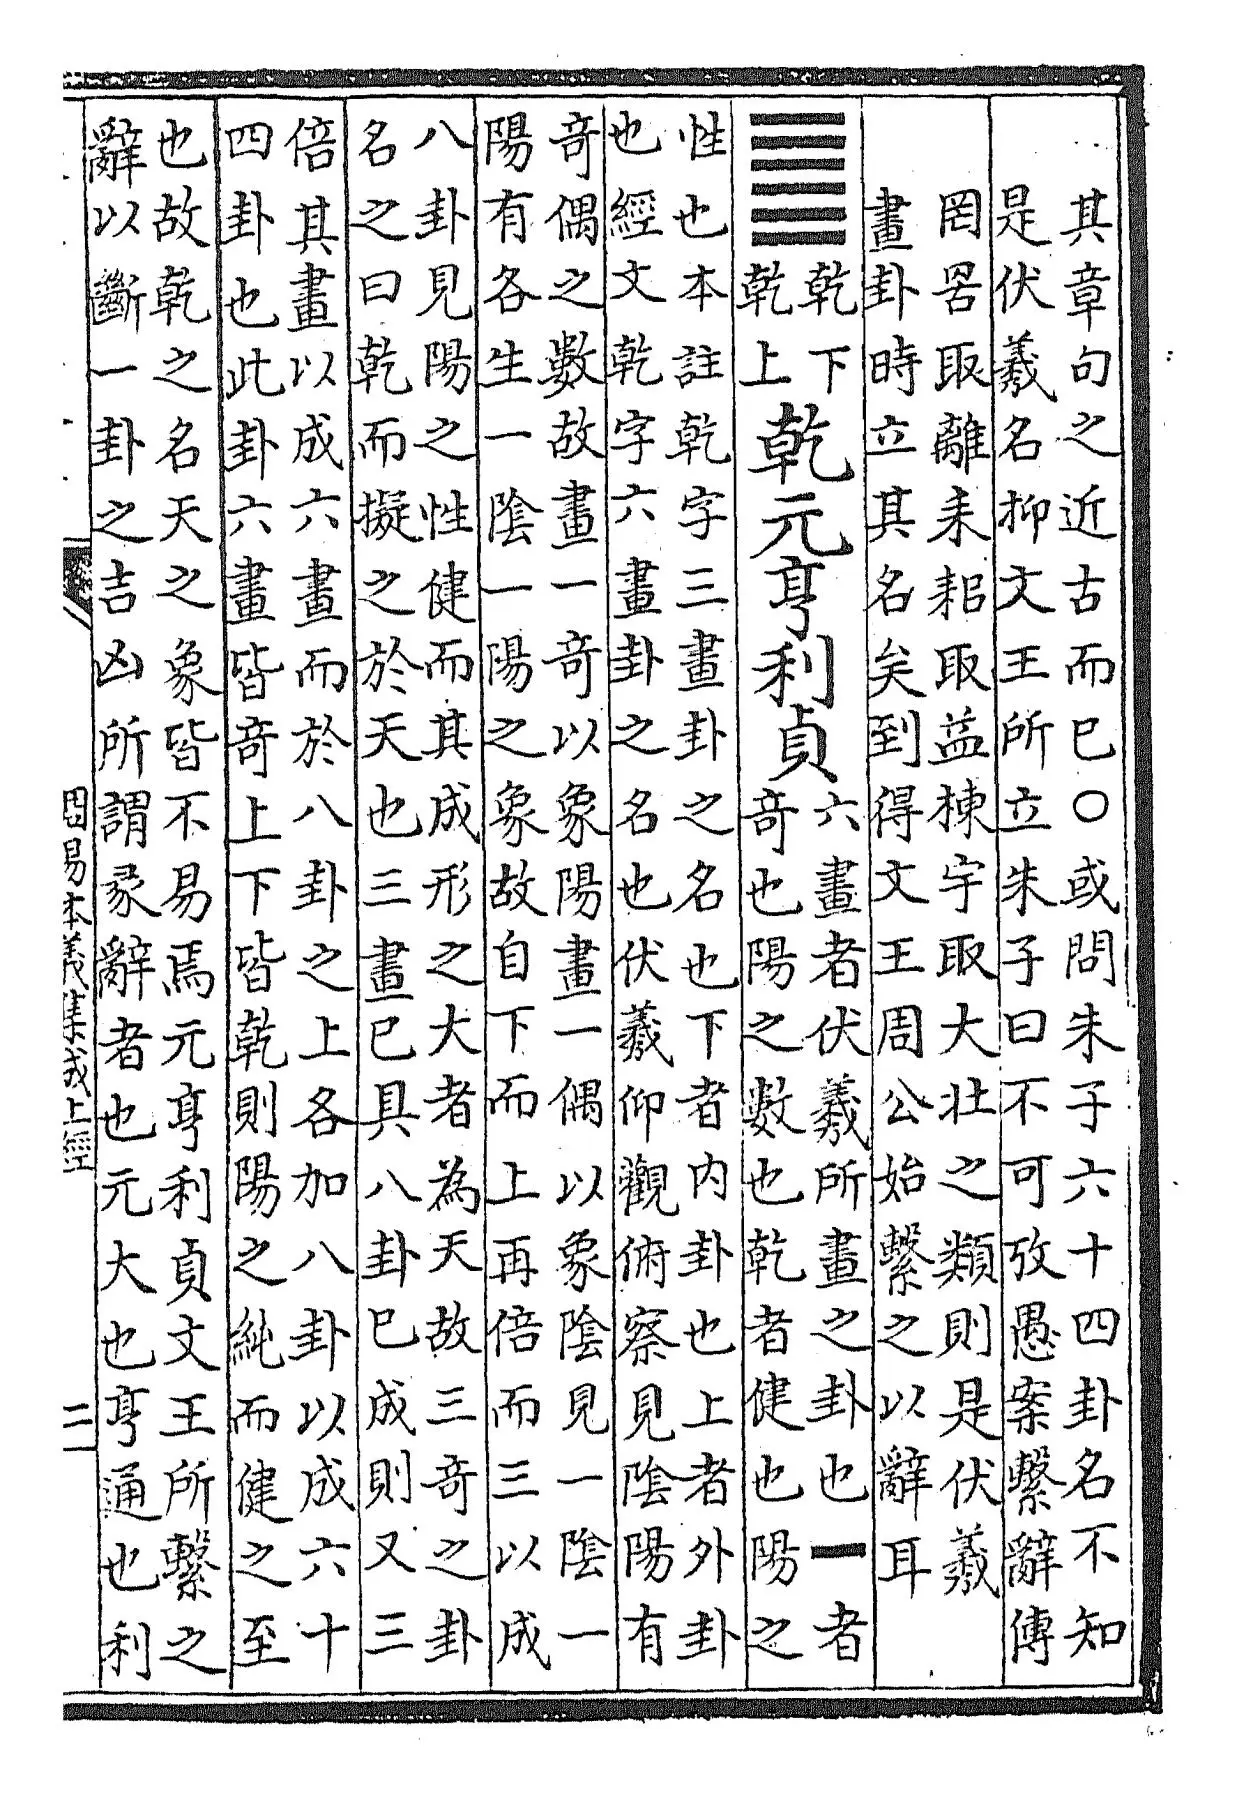 其章句之近古而巳〇或問朱子六十四卦名不知
是伏羲名抑文王所立朱子曰不可攷愚案繫辭傳
罔罟取離耒耜取益棟宇取大壯之類則是伏羲
畫卦時立其名矣到得文王周公始繫之以辭耳
䷀
乾下
乾上
乾元亨利貞
六畫者伏羲所畫之卦也一者
奇也陽之數也乾者健也陽之
性也本註乾字三畫卦之名也下者内卦也上者外卦
也經文乾字六畫卦之名也伏羲仰觀俯察見陰陽有
奇偶之數故畫一奇以象陽畫一偶以象陰見一陰一
陽有各生一陰一陽之象故自下而上再倍而三以成
八卦見陽之性健而其成形之大者為天故三奇之卦
名之曰乾而擬之於天也三畫巳具八卦巳成則又三
倍其畫以成六畫而於八卦之上各加八卦以成六十
四卦也此卦六畫皆奇上下皆乾則陽之純而健之至
也故乾之名天之象皆不易焉元亨利貞文王所繫之
辭以斷一卦之吉凶所謂彖辭者也元大也亨通也利
周易本義集成上經
二